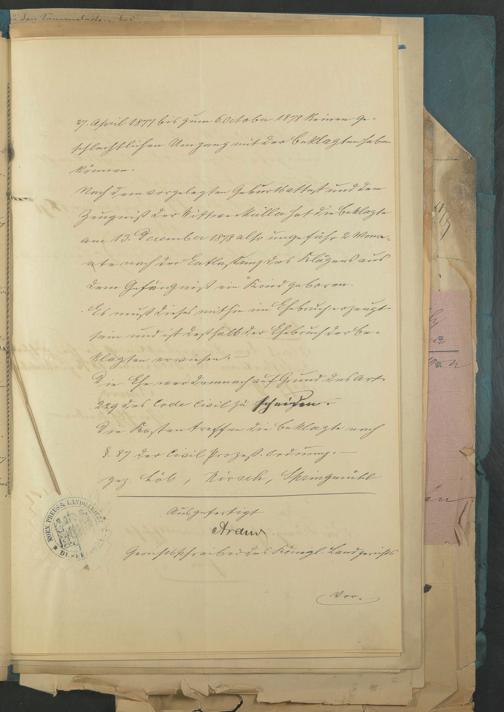 27. April 1878 bis zum 6 October 1878 keinen ge-
schlechtlichen Umgang mit der Beklagten haben
können.
Nach dem vorgelegten Geburtsattest und dem
Zeugniß der Wittwe Müller hat die Beklagte
am 13. December 1878 also ungefähr 2 Mona-
te nach der Entlassung des Klägers aus
dem Gefängniß ein Kind geboren.
Es muß dieses mithin im Ehebruch erzeugt
sein und ist deshalb der Ehebruch der Be-
klagten erwiesen.
Die Ehe war demnach auf Grund des Art.
229 des Code Civil zu scheiden.
Die Kosten treffen die Beklagte nach
§. 87 der Civil Prozeß Ordnung.
gez. Löb, Kirsch,
Ausgefertigt
Gerichtsschreiber des Königl. Landgerichts